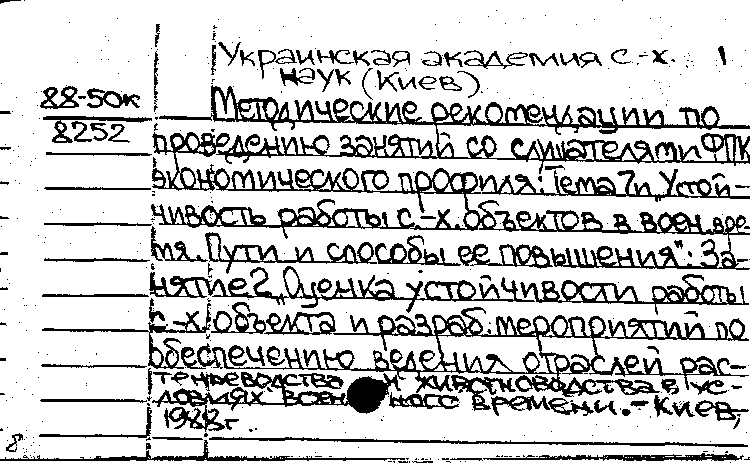 Украинская академия с.-х. 1
наук (Киев)
88-50к Методические рекомендации по
8252 проведению занятий со слушателями ФПК
экономического профиля: Тема 7и „Устой-
чивость работы с.-х. объектов в воен. вре-
мя. Пути и способы ее повышения": За-
нятие 2 „Оценка устойчивости работы
с.-х. объекта и разраб. мероприятий по
обеспечению ведения отраслей рас-
тениеводства и животноводства в ус-
ловиях военного времени. - Киев,
1988г.
8